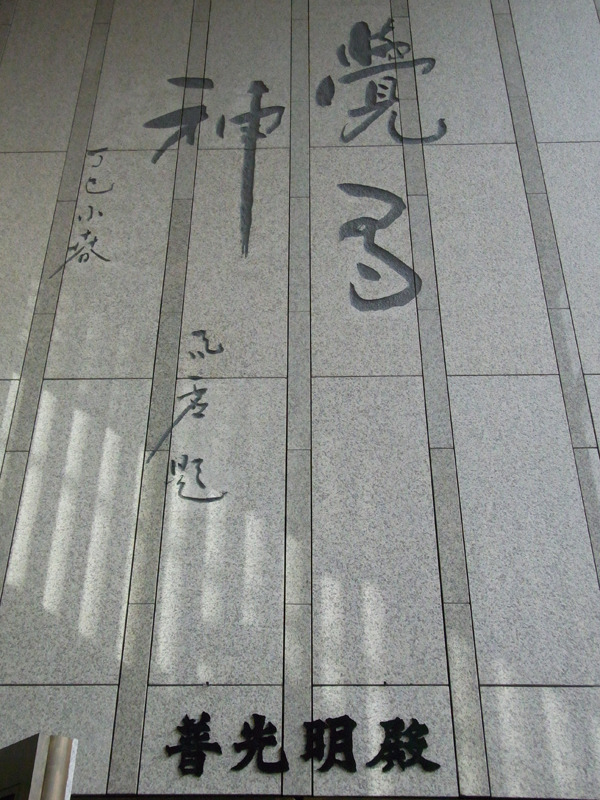 覺
神
丁巳小春
題
普光明殿